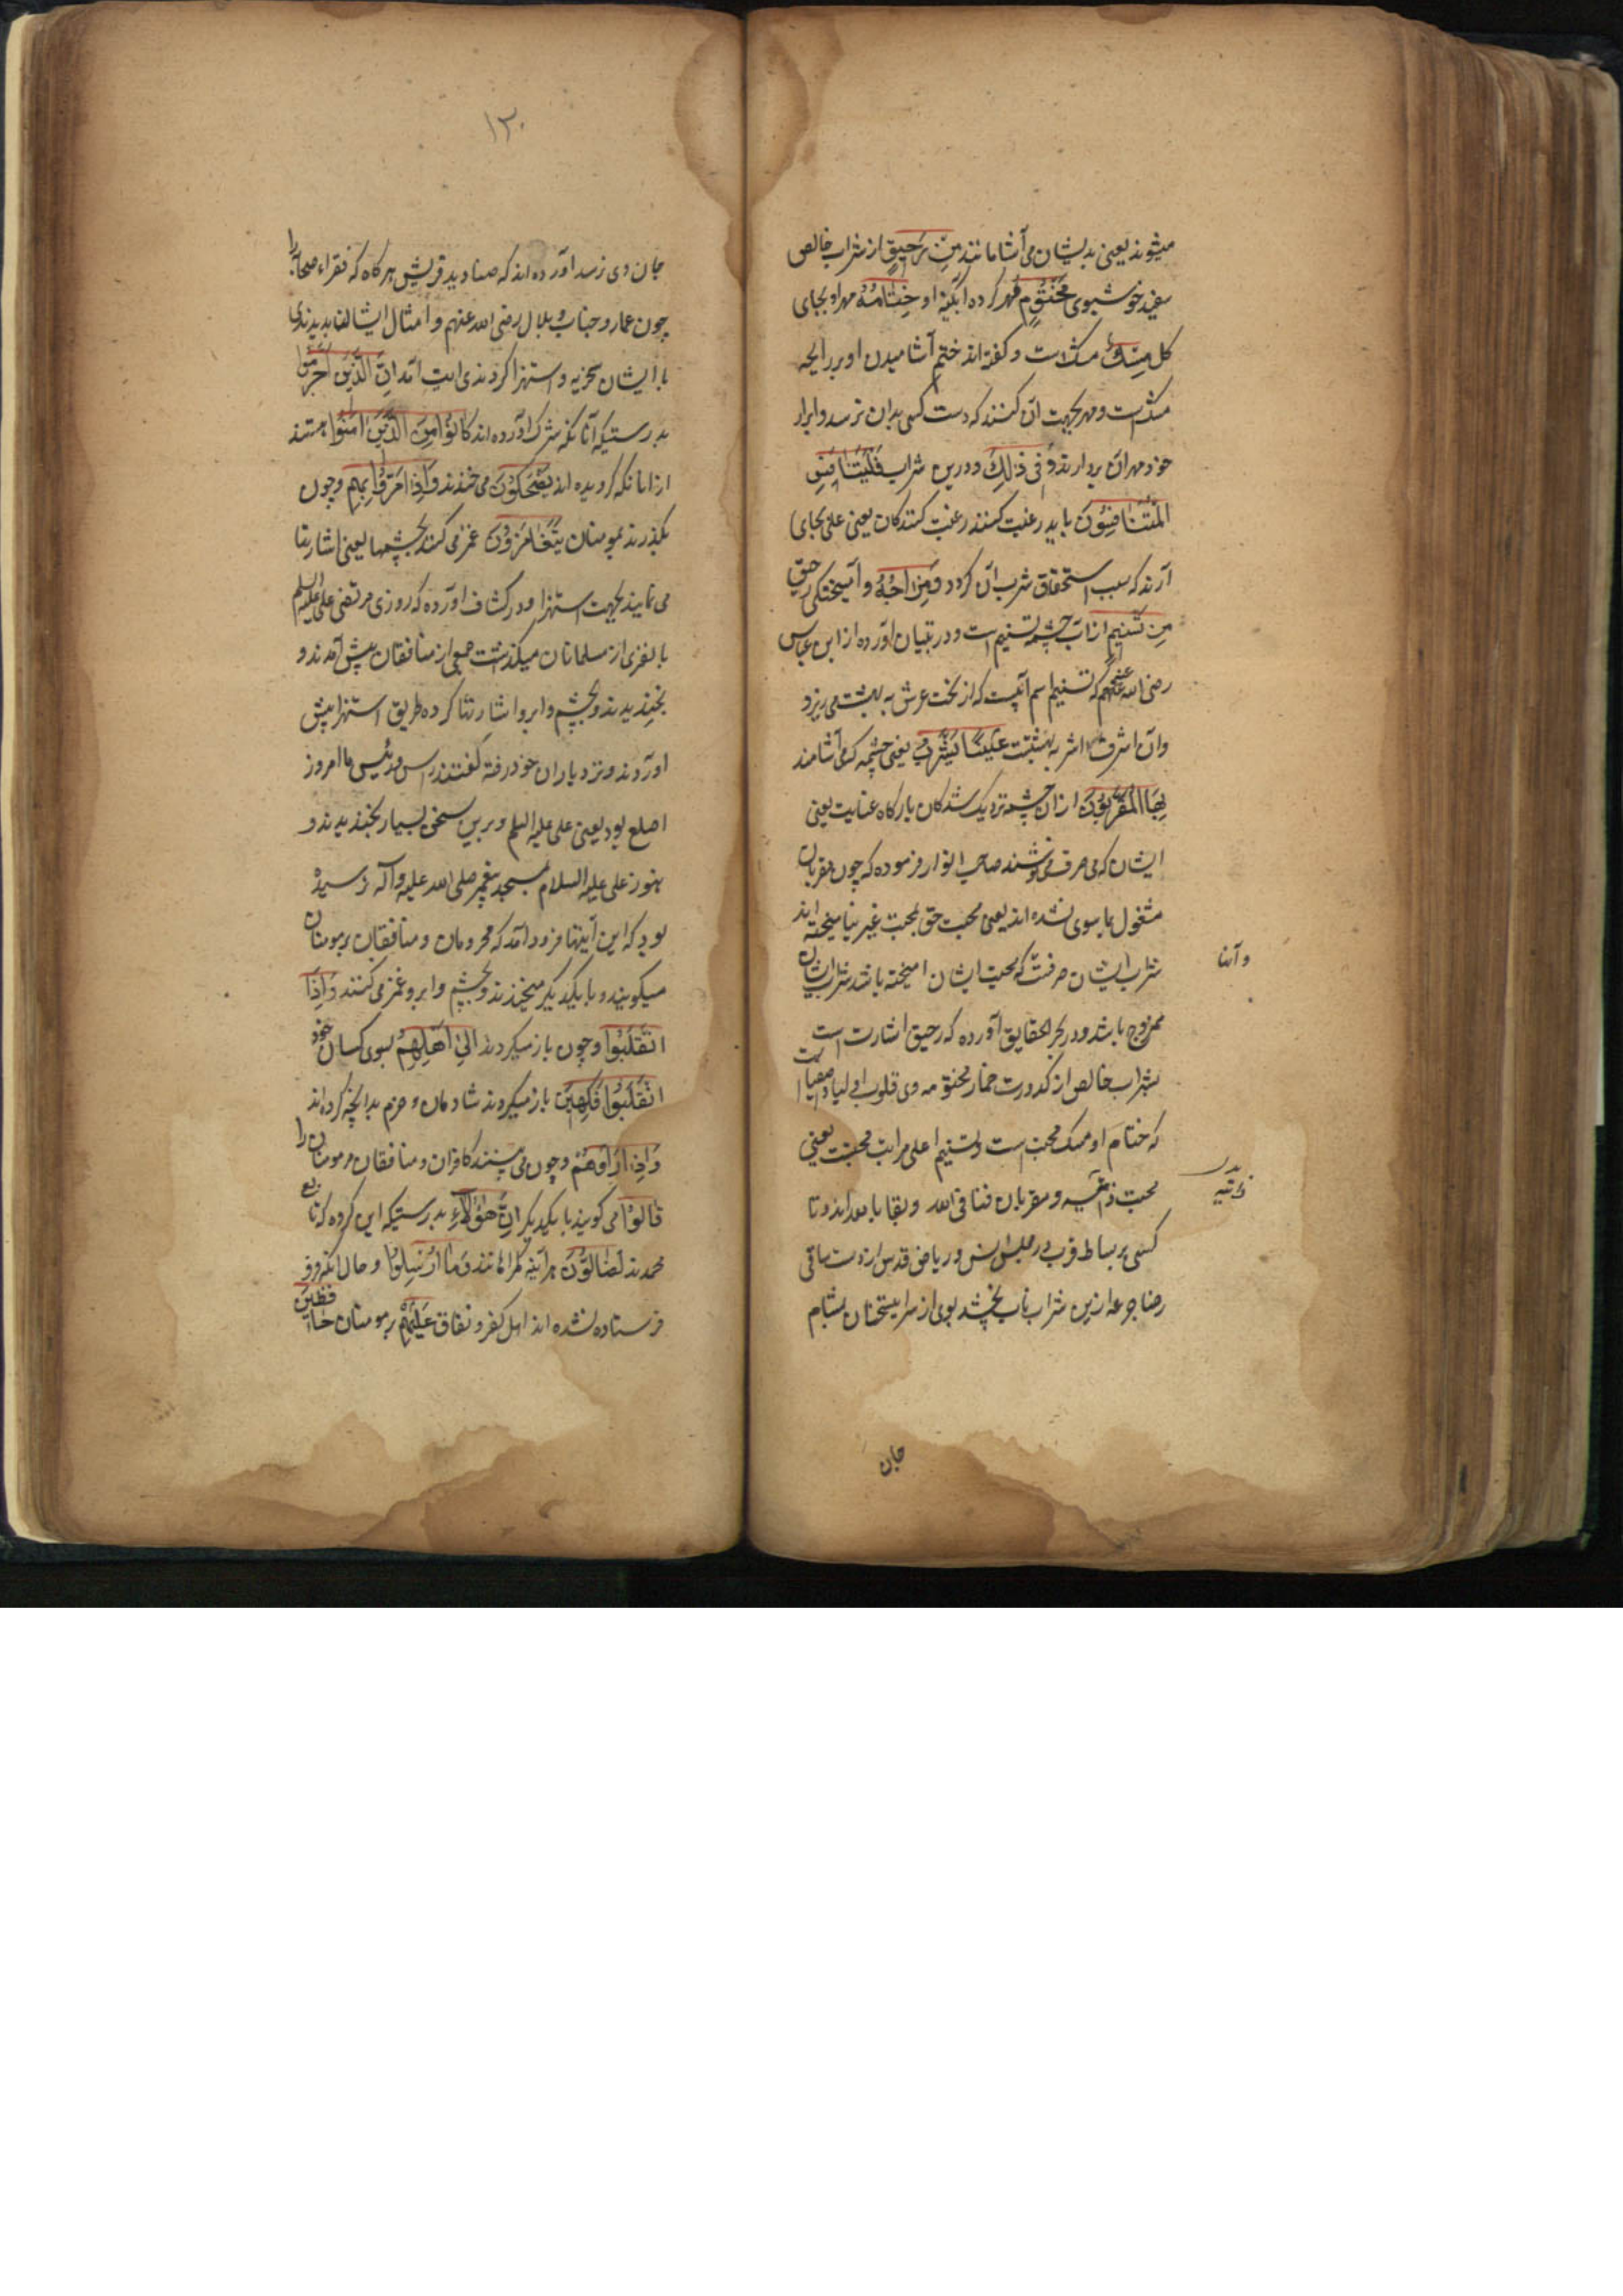 میشوند یعنی بدیشان می آشامانند مِنْ رَحِیقٍ از شراب خالص
سفید خوشبوی مَخْتُومٍ مهر کرده ابکینه او خِتَامُهُ مهر او بجای
کل مِسْكٌ مشک است و کفته اند ختم آشامیدن او بر رایحه
مشکست و مهر بجهت ان کنند که دست کسی بدان نرسد و ابرار
خود مهر آن بردارند وَفِی ذَلِكَ و درین شراب فَلْیَتَنَافَسِ
الْمُتَنَافِسُونَ باید رغبت کنند رغبت کنندکان یعنی عملی بجای
آرند که سبب استحقاق شرب آن کردد وَمِزَاجُهُ و آمیختکی رحیق
مِن تَسْنِیمٍ از آب چشمه تسنیم است و در تبیان آورده از ابن عباس
رضی الله عنهم که تسنیم اسم آبیست که از تحت عرش به بهشت می ریزد
وآن اشرف اشربه بهشتست عَیْنًا یَشْرَبُ یعنی چشمه که می آشامند
بِهَا الْمُقَرَّبُونَ ازان چشمه نزدیک شدکان بارکاه عنایت یعنی
ایشان که می صرف می نوشند صاحب انوار فرموده که چون مقربان
مشغول بما سوی نشده اند یعنی محبت حق بمحبت غیر نیامیخته اند
شراب ایشان صرفست که محبت ایشان امیخته باشد شراب ایشان
وآنها
ممزوج باشد ودر بحر الحقایق آورده که رحیق اشارت است
بشراب خالص از کدورت خمار مختوم دی قلوب اولیا و اصفیا است
که ختام او مسک محبت است و تسنیم اعلی مراتب محبت یعنی
محبت ذاتیه و مقربان فنا فی الله و بقا بالله اند و تا
ذاتیه
کسی بر بساط قرب در مجلس انس و ریاض قدس از دست ساقی
رضا جرعه ازین شراب ناب نچشد بوی از سر این سخنان بمشام
جان
۱۳۰
جان وی نرسد آورده اند که صنادید قریش هر کاه که فقراء صحابه را
چون عمار و خباب و بلال رضی الله عنهم و امثال ایشان بدیدندی
با ایشان سخریه و استهزا کردندی ایت آمد اِنَّ الَّذِینَ اَجْرَمُوا
بدرستیکه آنانکه شرک آورده اند کَانُوا مِنَ الَّذِینَ اٰمَنُوا هستند
از انانکه کرویده اند یَضْحَکُونَ می خندند وَاِذَا مَرُّوا بِهِم و چون
بکذرند بمومنان یَتَغَامَزُونَ غمز می کنند بچشمها یعنی اشارتها
می نمایند بجهت استهزا ودر کشاف آورده که روزی مرتضی علی علیه السلم
با نفری از مسلمانان میکذشت جمعی از منافقان پیش آمدند و
بخندیدند و بچشم و ابرو اشارتها کرده طریق استهزا پیش
اوردند و نزد یاران خود رفته کفتند رئیس ما امروز
اصلع بود یعنی علی علیه السلم و برین سخن بسیار بخندیدند و
هنوز علی علیه السلام بمسجد پیغمبر صلی الله علیه وآله نرسیده
بود که این آیتها فرود آمد که مجرمان و منافقان بر مومنان
میکویند و با یکدیکر میخندند و بچشم و ابرو غمز می کنند وَاِذَا
انْقَلَبُوا و چون باز میکردند اِلَی اَهْلِهِمُ بسوی کسان خود
انْقَلَبُوا فَکِهِینَ باز میکردند شادمان و خرم بدانچه کرده اند
وَاِذَا رَاَوْهُمْ و چون می بینند کافران و منافقان مر مومنان را
قَالُوا می کویند با یکدیکر اِنَّ هَؤُلَاءِ بدرستیکه این کروه که تابع
محمدند لَضَالُّونَ هر آینه کمراهانند وَمَا اُرْسِلُوا و حال آنکه
فرستاده نشده اند اهل کفر و نفاق عَلَیْهِمْ بر مومنان حَافِظِینَ